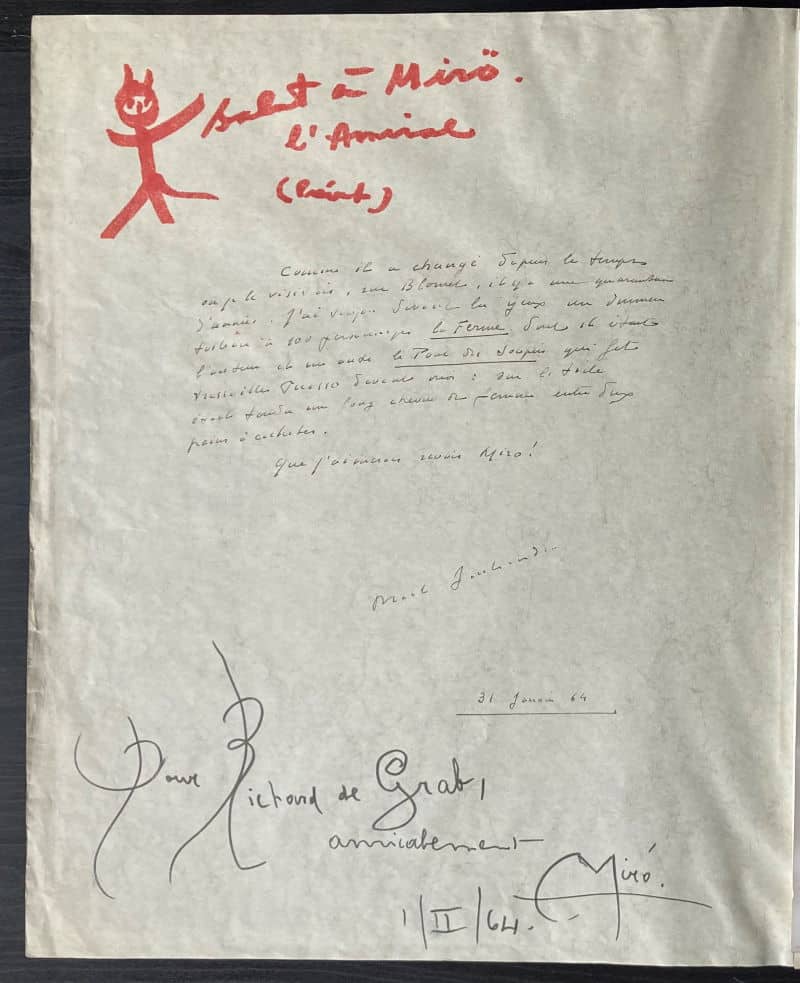 Salut à Miró.
l'Amiral
Comme il a changé depuis le temps
où je le visitais, rue Blomet, il y a une quarantaine
d'années. J'ai devant les yeux un
tableau à 100 personnages la Ferme dont il était
l'auteur et un autre le Pont des Soupirs qui fit
tressaillir Picasso devant moi : sur la toile
était tendu un long cheveu de femme entre deux
pains à cacheter.
Que j'aimerais revoir Miró!
Marcel Jouhandeau
31 Janvier 64
Pour Richard de Grab,
amicalement
Miró.
1/II/64.